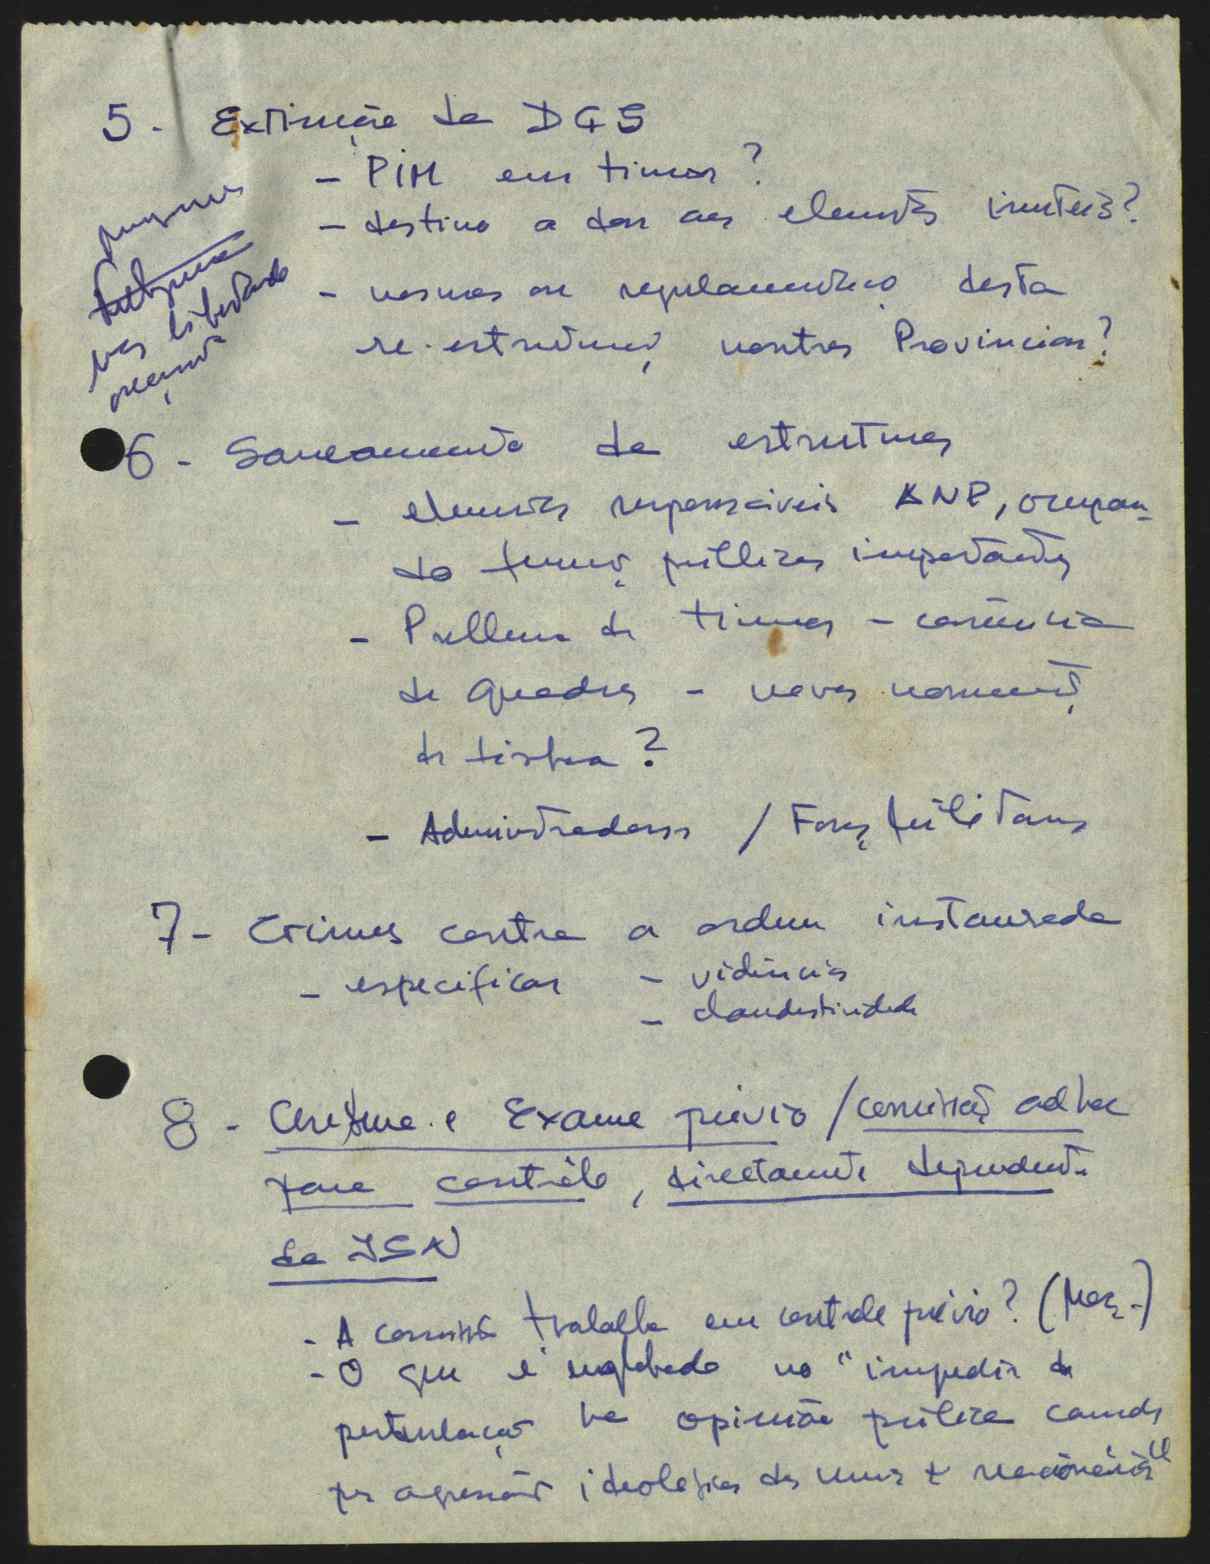 5 - Extinção da DGS
- PIM em timor?
- destino a dar aos elementos inuteis?
- normas ou regulamentação desta
re-estruturação noutras Provincias?
nas liberdade
6 - Saneamento de estruturas
- elementos responsáveis ANP, ocupan-
do funções publicas importantes
- Problema de timor - carência
de quadros - novas nomeações
de lisboa?
- Administradores / Forças Militares
7 - Crimes contra a ordem instaurada
- especificar - violências
- clandestinidade
8 - Censura e Exame prévio / comissão adhoc
para contrôle, directamente dependente
da JSN
- A comissão trabalha em contrôle prévio? (Moç.)
- O que é englobado no "impedir da
perturbação na opinião pública causada
por agressões ideológicas dos meios + reaccionários"